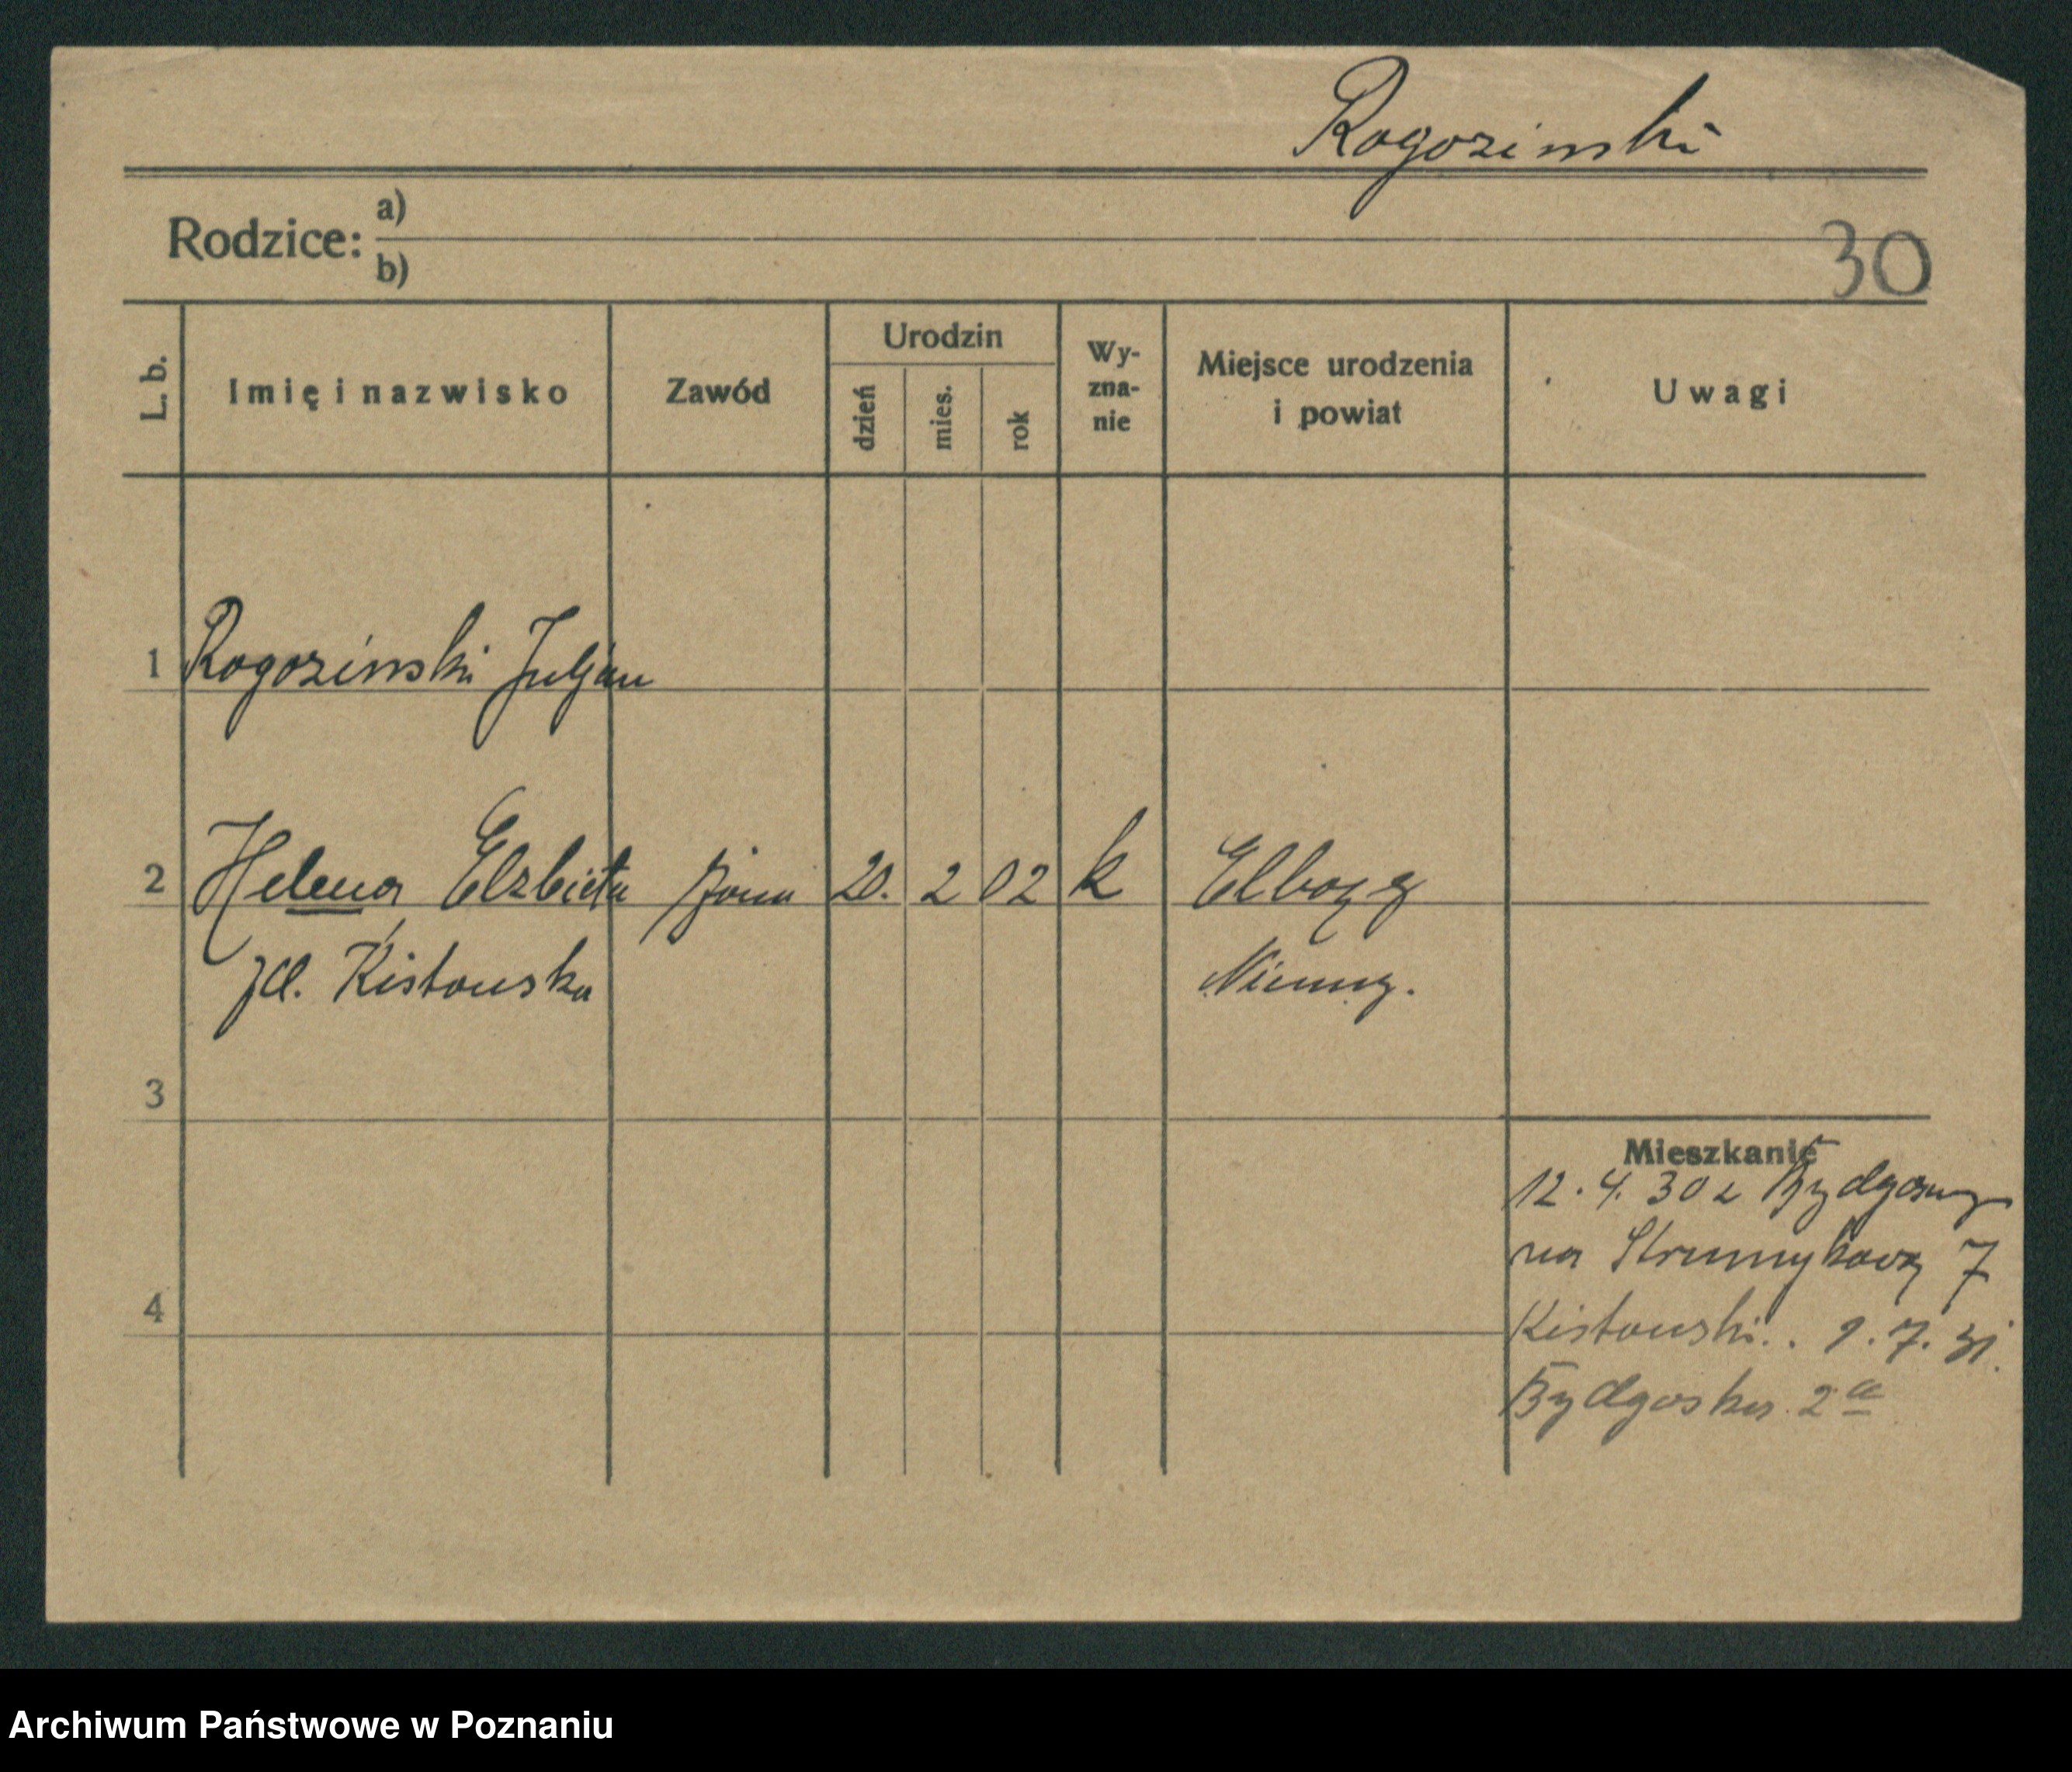 Rogozinski
Rodzice: a)
b)
30
L. b. Imię i nazwisko Zawód Urodzin dzień mies. rok Wy-zna-nie Miejsce urodzenia i powiat Uwagi
1 Rogozinski Juljan
2 Helena Elzbieta żona 20. 2 02 k Elbąg
zd. Kistowska Niemcy.
3
Mieszkanie
12. 4. 30 z Bydgoszczy
na Strumykową 7
4
Kistowski.. 1. 7. 31.
Bydgoska 2a
Archiwum Państwowe w Poznaniu